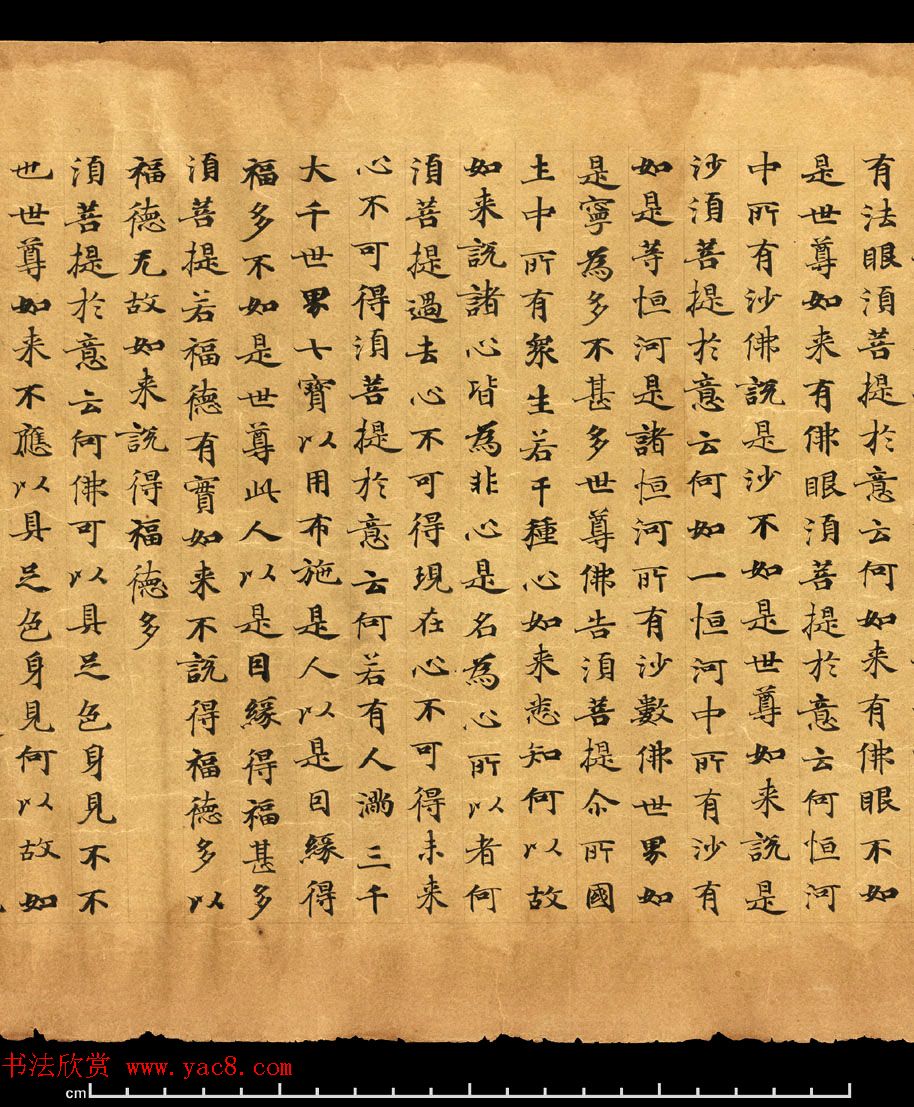 有法眼須菩提於意云何如来有佛眼不如
是世尊如来有佛眼須菩提於意云何恒河
中所有沙佛說是沙不如是世尊如来說是
沙須菩提於意云何如一恒河中所有沙有
如是等恒河是諸恒河所有沙數佛世界如
是寧為多不甚多世尊佛告須菩提尒所國
土中所有衆生若干種心如来悉知何以故
如来說諸心皆為非心是名為心所以者何
須菩提過去心不可得現在心不可得未来
心不可得須菩提於意云何若有人滿三千
大千世界七寶以用布施是人以是因緣得
福多不如是世尊此人以是因緣得福甚多
須菩提若福德有實如来不說得福德多以
福德无故如来說得福德多
須菩提於意云何佛可以具足色身見不不
也世尊如来不應以具足色身見何以故如
书法欣赏 www.yac8.com
cm